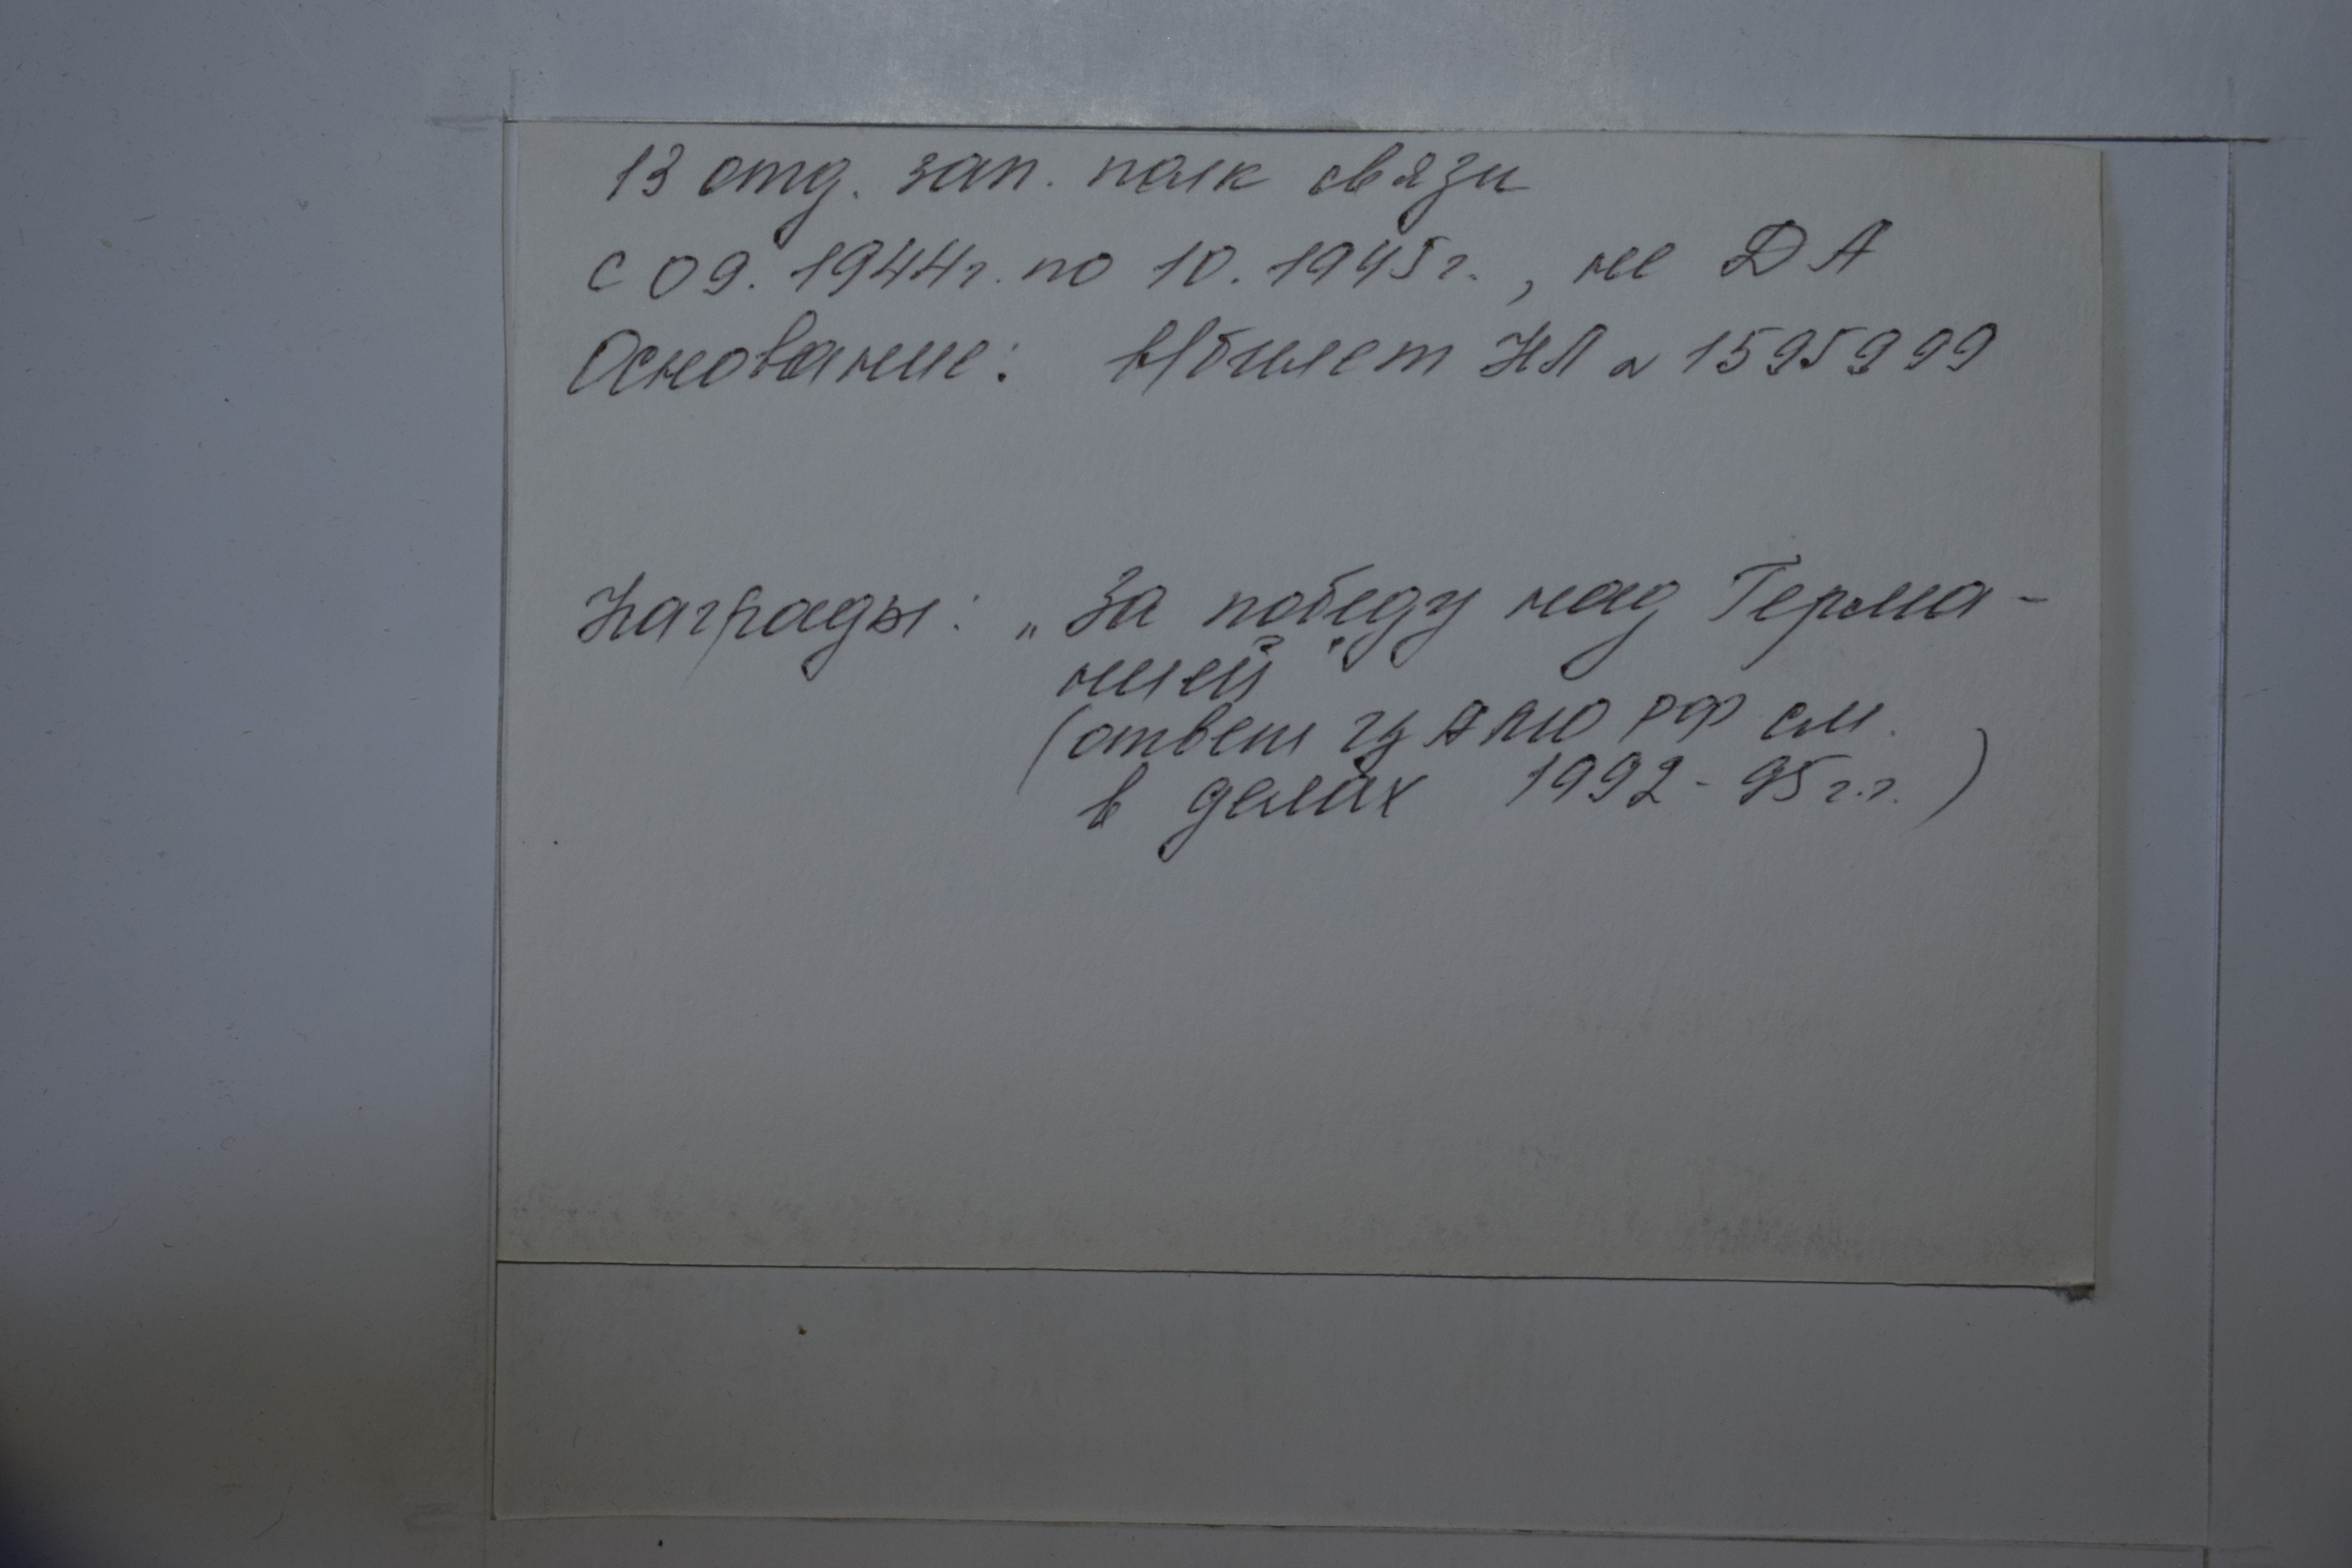 13 отд. зап. полк связи
с 09. 1944г. по 10. 1945г., не ДА
Основание: в/билет НЛ № 1595999
Награды: „За победу над Герма-
нией"
(ответ ЦАМО РФ см.
в делах 1992-95г.г.)